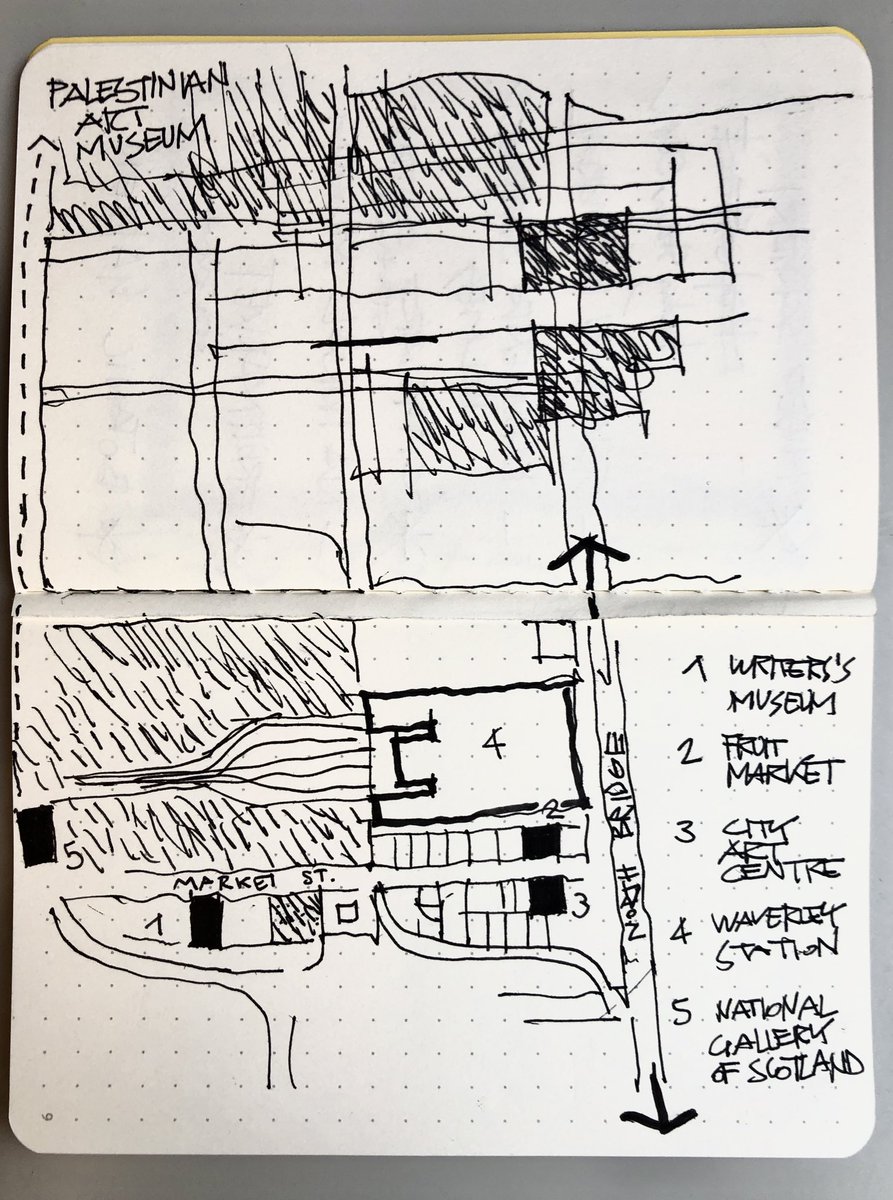 PALESTINIAN
ART
MUSEUM
4
2
5
MARKET ST.
1
3
NORTH BRIDGE
1 WRITERS'S
MUSEUM
2 FRUIT
MARKET
3 CITY
ART
CENTRE
4 WAVERLEY
STATION
5 NATIONAL
GALLERY
OF SCOTLAND
6